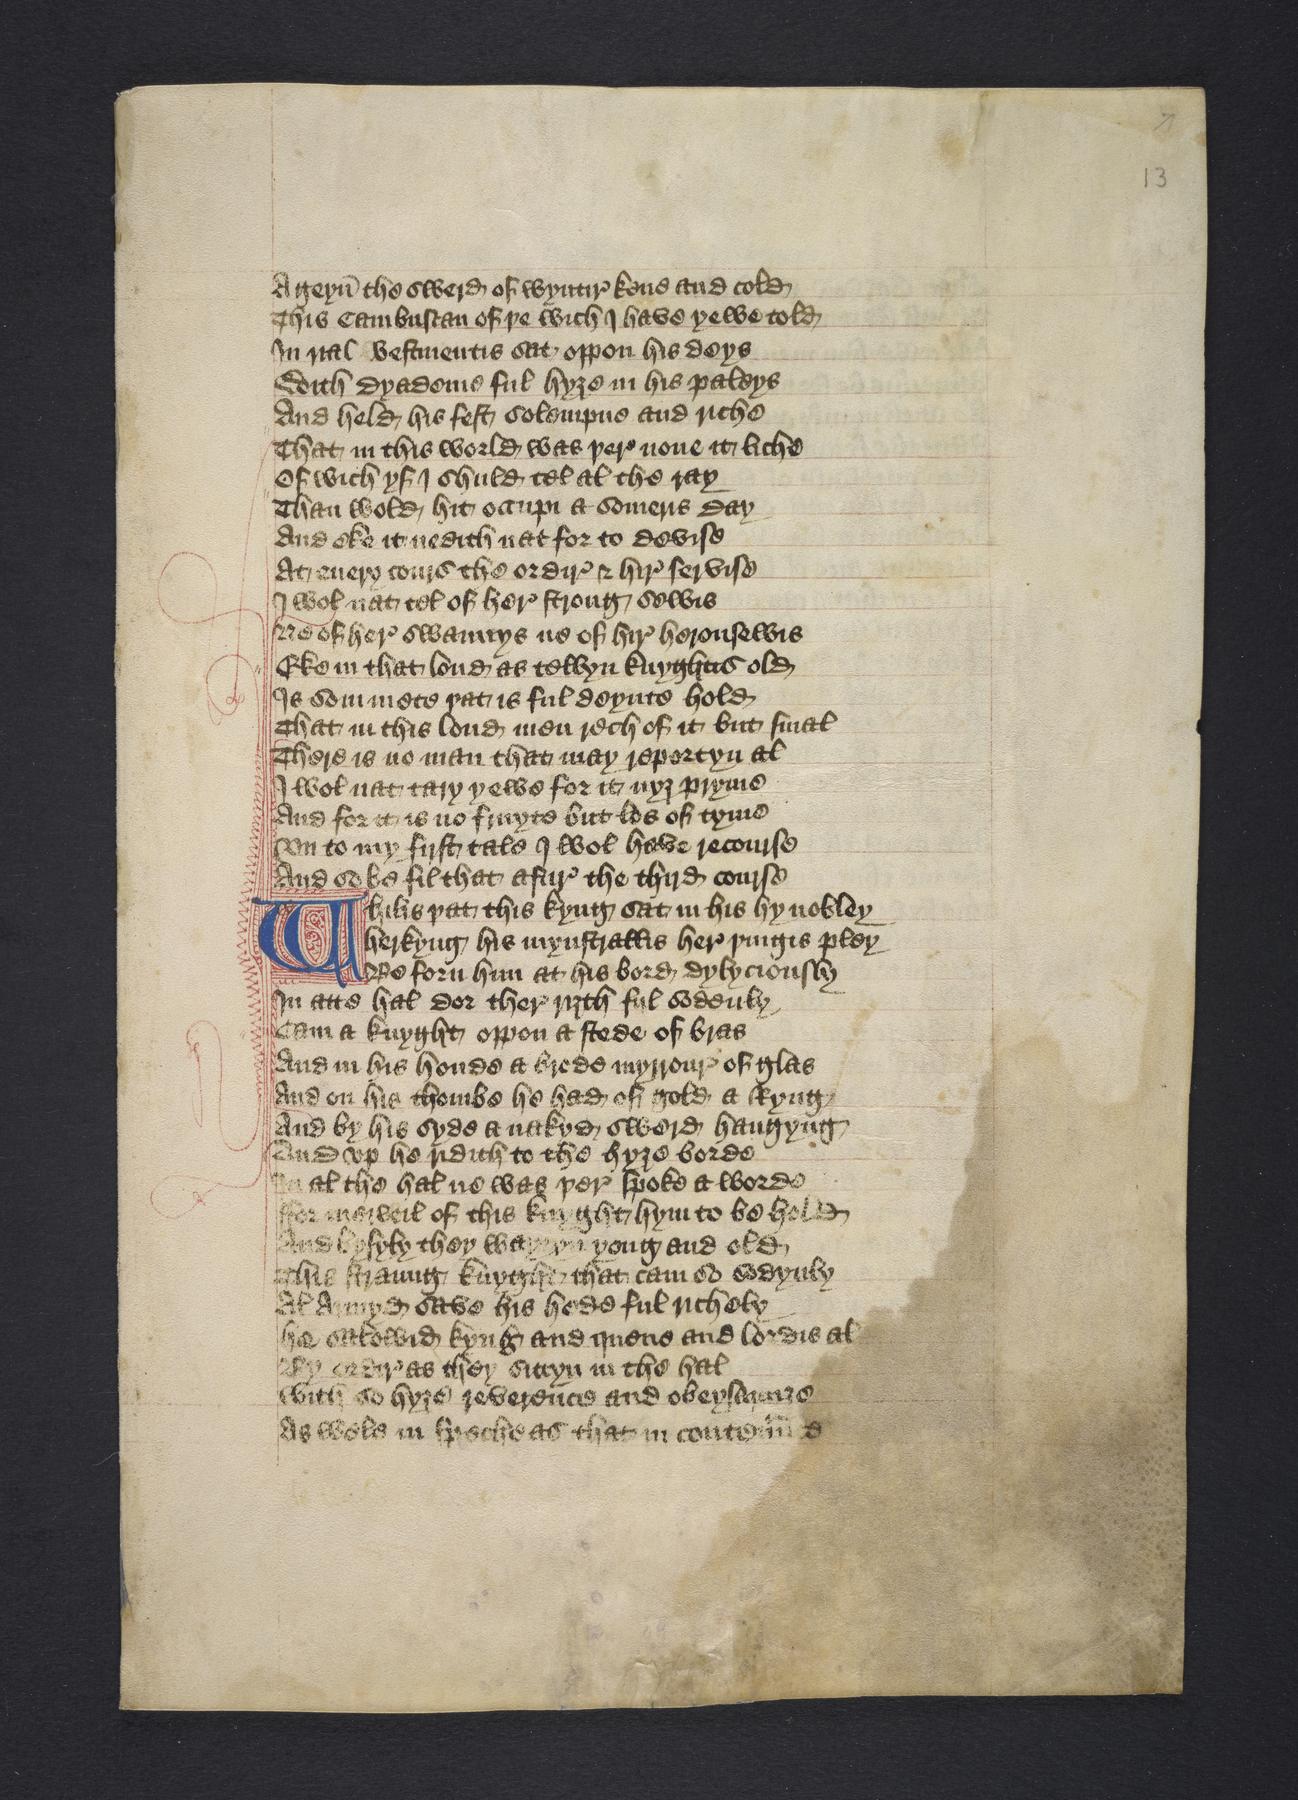 13
Ageyn̄ the swerd of wyntir kene and cold
This Cambuscan of þe wich I have yewe told
In rial vestmentis sat oppon his deys
With dyademe ful hyȝe in his paleys
And held his fest solempne and riche
That in this world was þer none it liche
Of wich yf I shuld tel al the ray
Than wold hit occupi a someris day
And eke it nedith nat for to devise
At euery cours the ordir & hir servise
I wol nat tel of her strong sewis
Ne of her swannys ne of hir heronsewis
Eke in that lond as tellyn knyghtis old
Is som mete þat is ful deynte hold
That in this lond men rech of it but smal
There is no man that may reportyn al
I wol nat tary yewe for it nyȝ pryme
And for it is no fruyte but los of tyme
Vn to my first tale I wol have recourse
And so be fil that aftir the thrid course
Whilis þat this kyng sat in his hy nobley
herkyng his mynstrallis her þingis pley
Be forn him at his bord dylyciously
In atte hal dor ther riȝth ful sodenly
Cam a knyght oppon a stede of bras
And in his honde a brode myrrour of glas
And on his thombe he had of gold a Ryng
And by his syde a nakyd swerd hangyng
And vp he ridith to the hyȝe borde
In al the hal ne was þer spoke a worde
ffor merveil of this knyght hym to be hold
And bysyly they waytyn yong and old
This straung knyght that cam so sodynly
Al Armyd save his hede ful richely
he salewid kyng and quene and lordis al
By ordir as they sittyn in the hal
With so hyȝe reverence and obeysaunce
As wele in speche as that in contenaunce